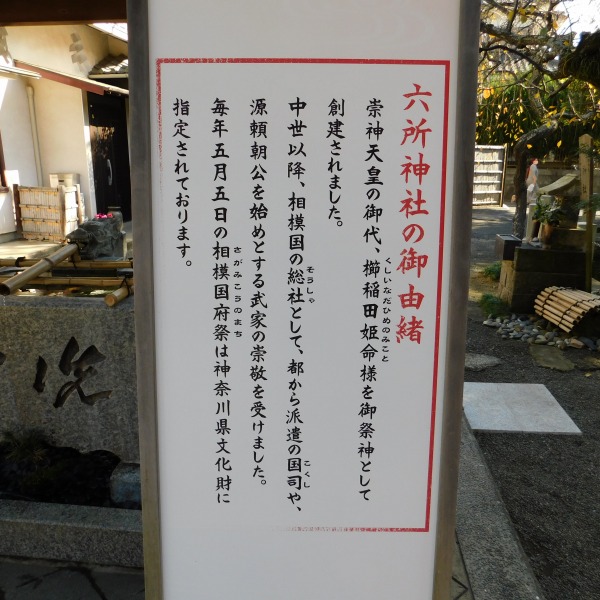 六所神社の御由緒
崇神天皇の御代、櫛稲田姫命様を御祭神として
くしいなだひめのみこと
創建されました。
中世以降、相模国の総社として、都から派遣の国司や、
そうしゃ
こくし
源頼朝公を始めとする武家の崇敬を受けました。
毎年五月五日の相模国府祭は神奈川県文化財に
さがみこうのまち
指定されております。
洗